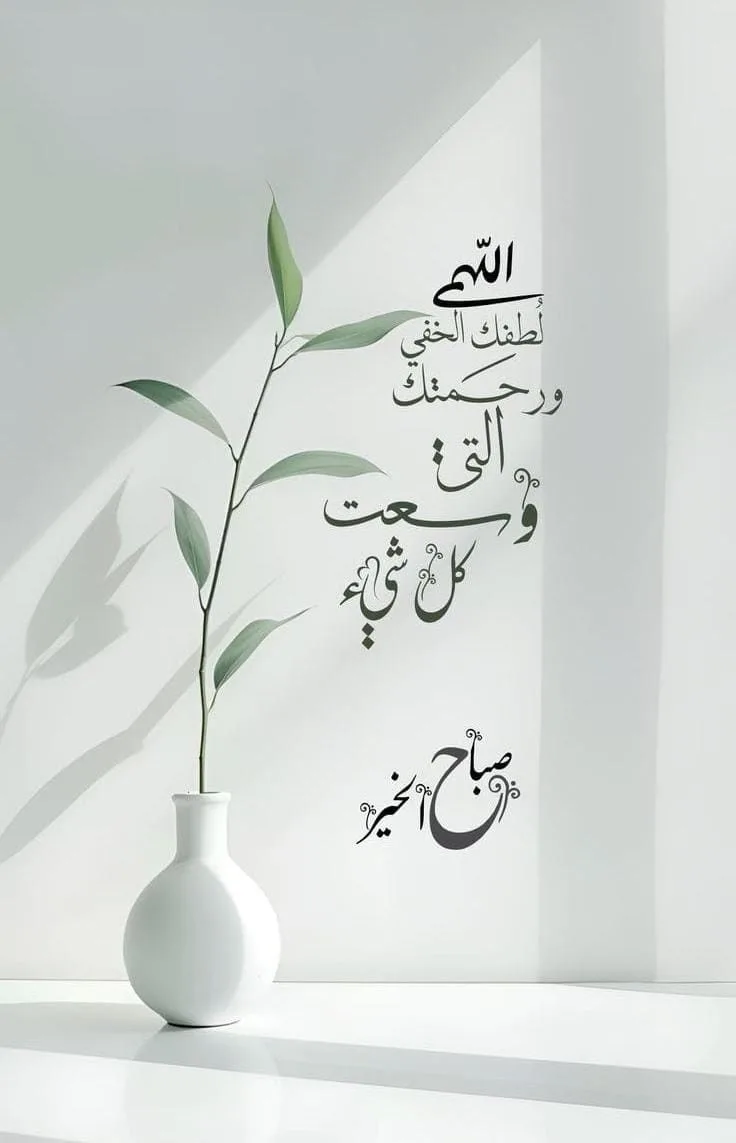 اللهم
لُطفك الخفي
ورحمتك
التي
وسعت
كل شيء
صباح الخير